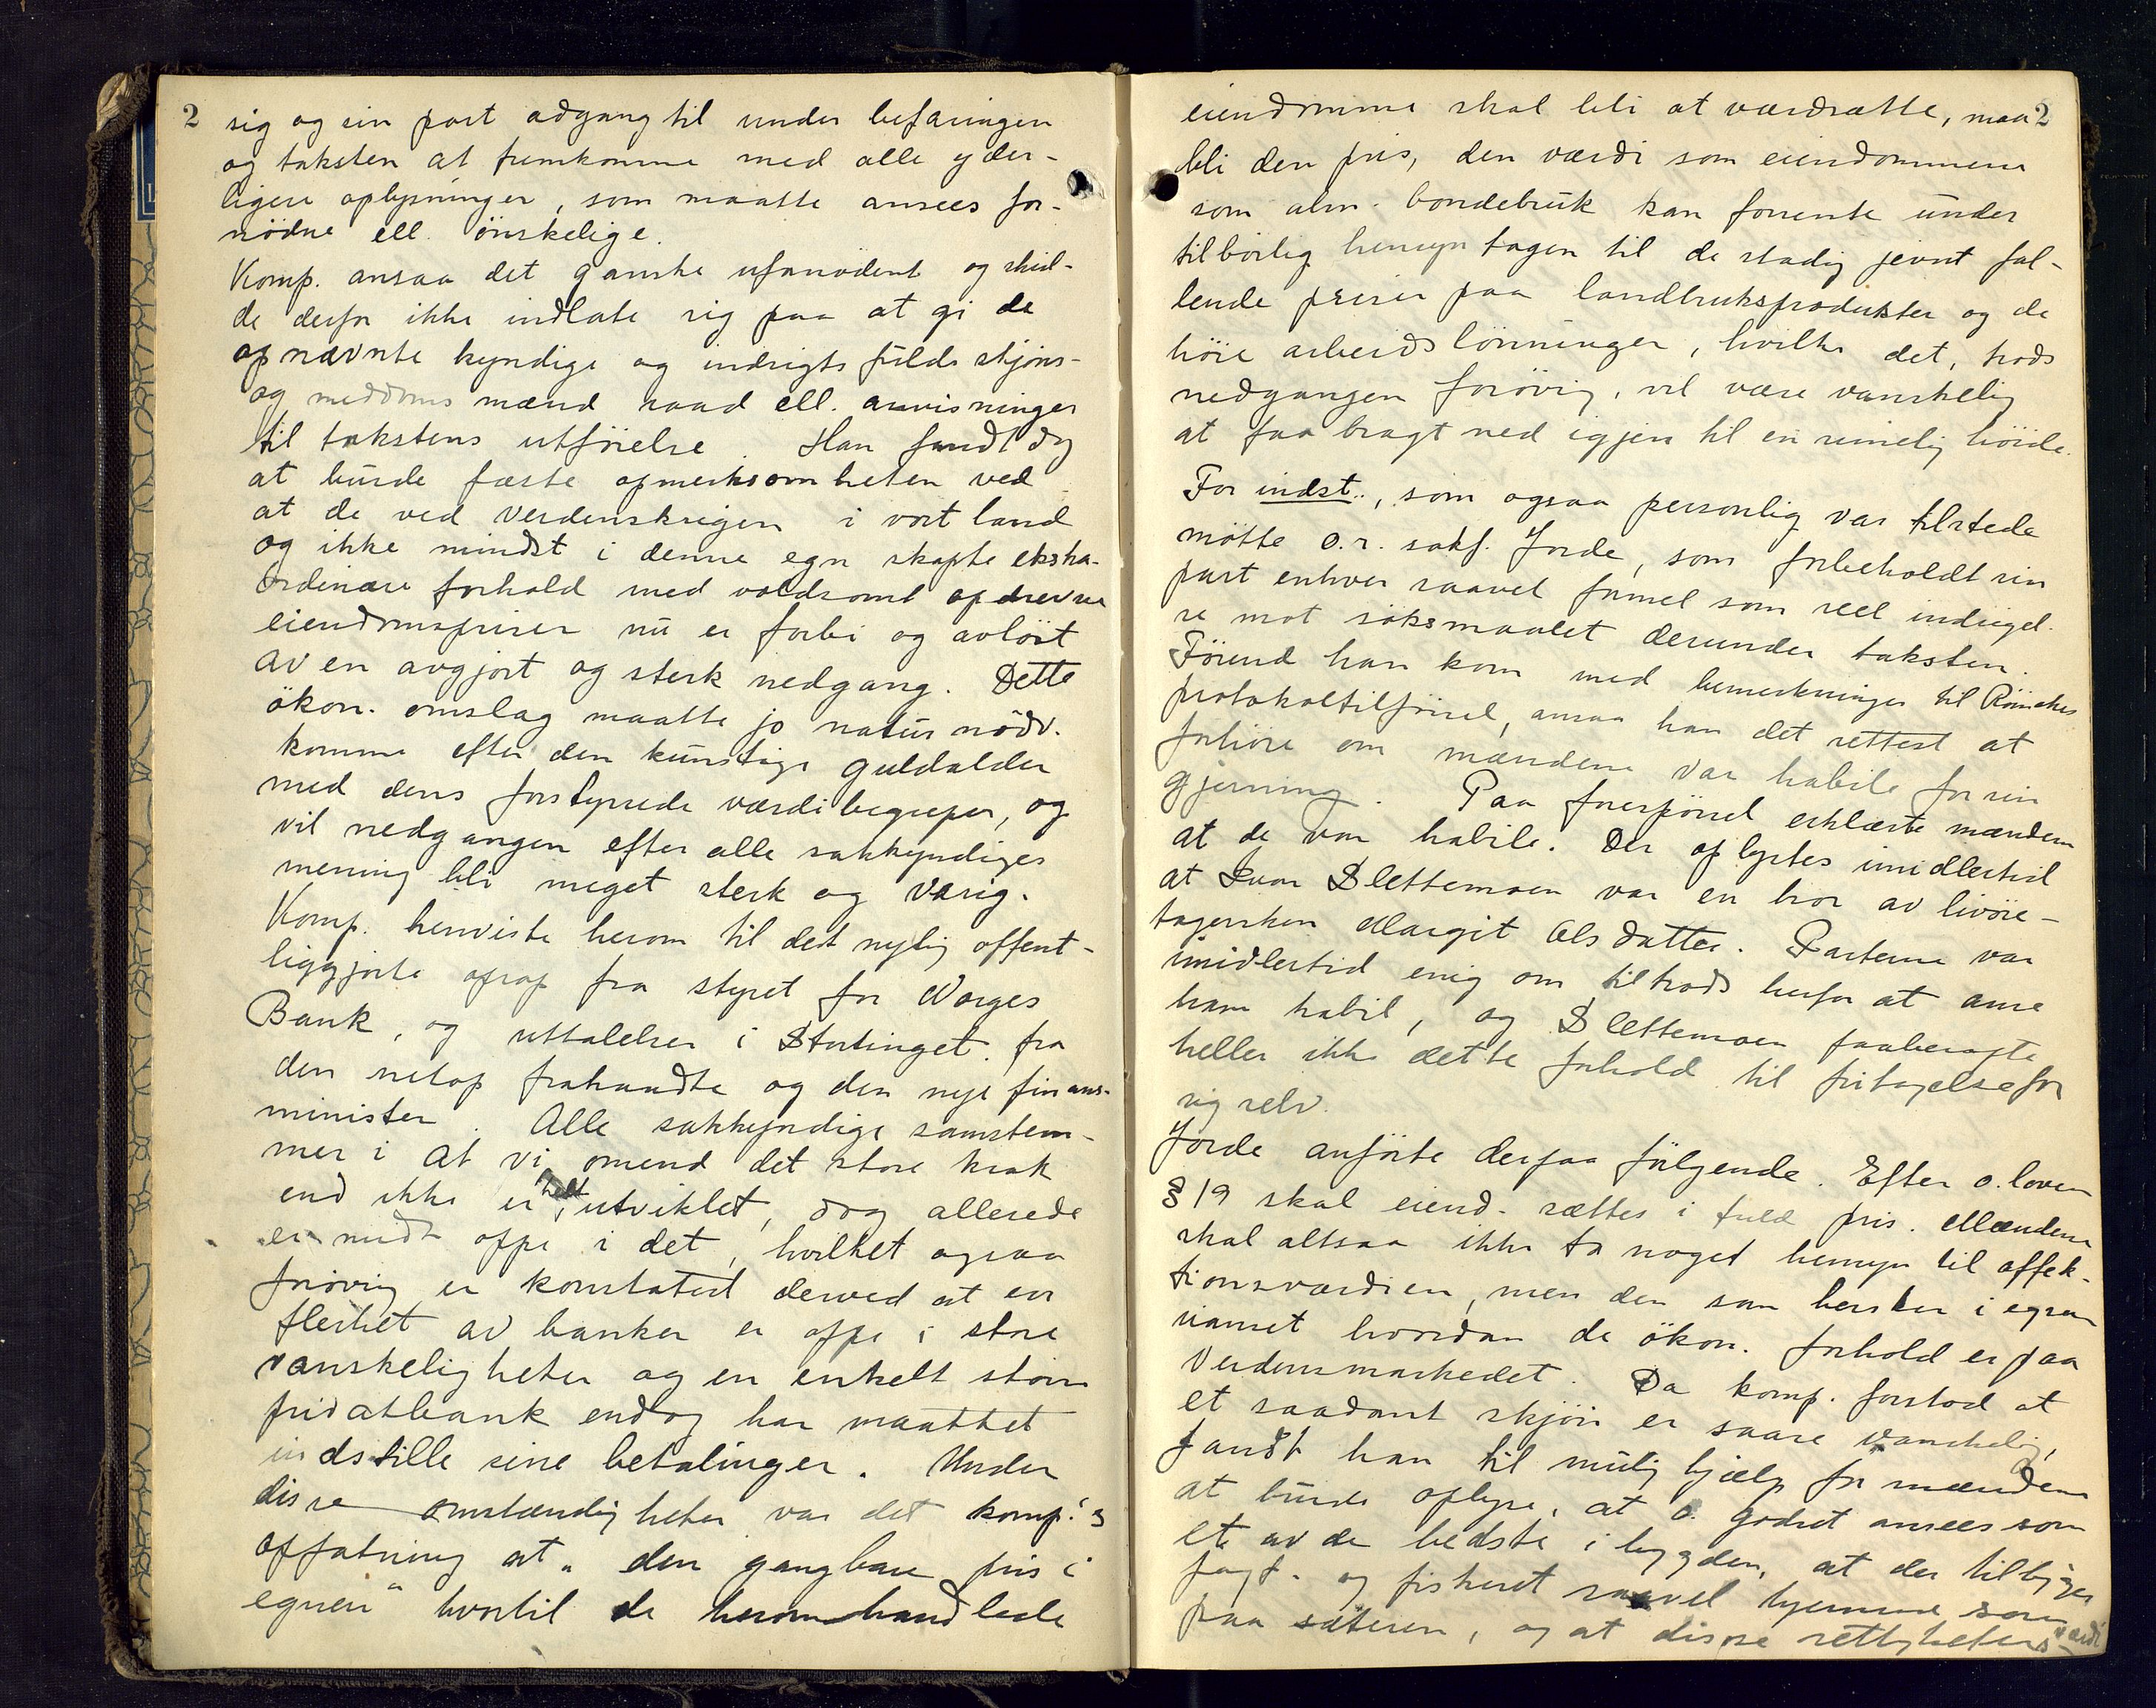 2
sig og sin part adgang til under befaringen
og taksten at fremkomme med alle yder-
ligere oplysninger, som maatte ansees for-
nödne ell. önskelige.
Komp. ansaa det ganske ufornödent og skul-
de derfor ikke indlate sig paa at gi de
opnævnte kyndige og indsigtsfulde skjöns-
og meddoms mænd raad ell. anvisninger
til takstens utförelse. Han fandt dog
at burde fæste opmerksomheten ved
at de ved verdenskrigen i vort land
og ikke mindst i denne egn skapte ekstra-
ordinære forhold med voldsomt opdrevne
eiendomspriser nu er forbi og avlöst
av en avgjort og sterk nedgang. Dette
ökon. omslag maatte jo naturnödv.
komme efter den kunstige guldalder
med dens forstyrrede værdibegreper, og
vil nedgangen efter alle sakkyndiges
mening bli meget sterk og varig.
Komp. henviste herom til det nylig offent-
liggjorte oprop fra styret for Norges
Bank, og uttalelser i Stortinget fra
den netop fratraadte og den nye finans-
minister. Alle sakkyndige samstem-
mer i at vi, omend det store krak
end ikke er helt utviklet, dog allerede
er midt oppe i det, hvilket ogsaa
forövrig er konstatert derved at en
flerhet av banker er oppe i store
vanskeligheter og en enkelt större
privatbank endog har maattet
indstille sine betalinger. Under
disse omstændigheter var det komp.'s
opfatning at "den gangbare pris i
egnen" hvortil de heromhandlede
eiendomme skal bli at værdsætte, maa 2
bli den pris, den værdi som eiendommene
som alm. bondebruk kan forrente under
tilbörlig hensyn tagen til de stadig jevnt fal-
lende priser paa landbruksprodukter og de
höie arbeidslönninger, hvilke det, trods
nedgangen forövrig, vil være vanskelig
at faa bragt ned igjen til en rimelig höide.
For indst., som ogsaa personlig var tilstede
mötte o.r. sakf. Jorde, som forbeholdt sin
part enhver saavel formel som reel indsigel-
se mot söksmaalet derunder taksten.
Förend han kom med bemerkninger til
protokoltilförsel, ansaa han det rettest at
forhöre om mændene var habile for sin
gjerning. Paa forespörsel erklærte mændene
at de var habile. Der oplystes imidlertid
at Ivar Slettemoen var en bror av livöre-
tagersken Margit Olsdatter. Parterne var
imidlertid enig om tiltrods herfor at anse
ham habil, og Slettemoen paaberopte
heller ikke dette forhold til fritagelse for
sig selv.
Jorde anförte derpaa fölgende. Efter o. loven
§ 19 skal eiend. sættes i fuld pris. Mændene
skal altsaa ikke ta noget hensyn til affek-
tionsværdien, men den som hersker i egnen
uanset hvordan de ökon. forhold er paa
verdensmarkedet. Da komp. forstod at
et saadant skjön er saare vanskelig,
fandt han til mulig hjælp for mændene
at burde oplyse, at o. godset ansees som
et av de bedste i bygden, at der tilligger
jagt- og fiskeret saavel hjemme som
paa sæteren, og at disse rettigheters værdi